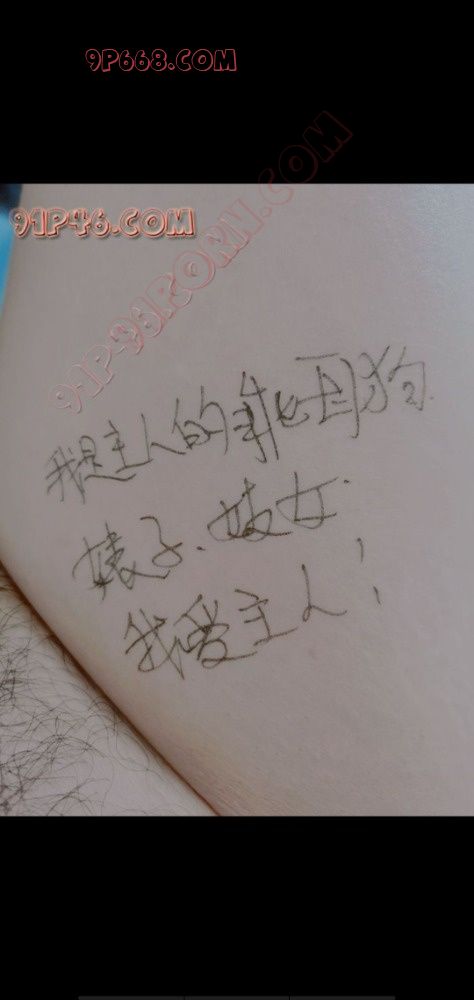 9P668.COM
91P46.COM
91P-46.PORN.COM
我是主人的
狗
婊子、妓女
我爱主人!